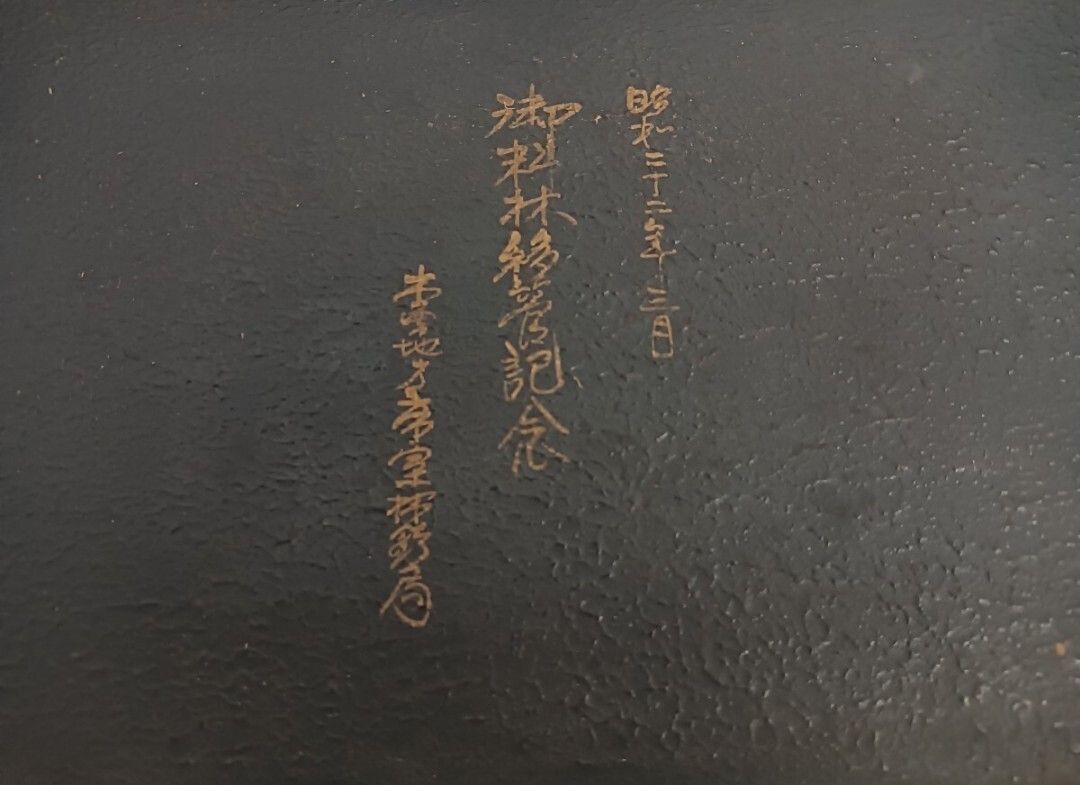 昭和二十二年三月
御料林移管記念
木曽地方帝室林野局